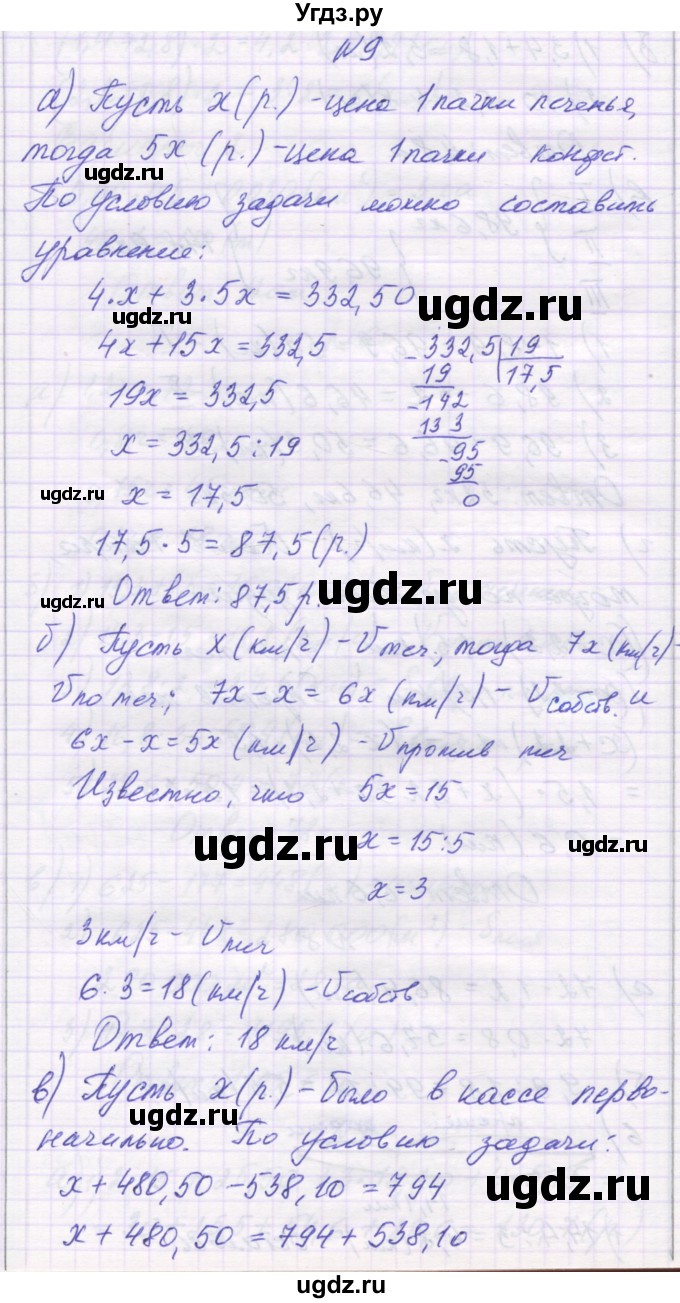 Угдз.ру
N9
а) Пусть x (р.) - цена 1 пачки печенья,
тогда 5x (р.) - цена 1 пачки конфет.
ugdz.ru
По условию задачи можно составить
уравнение:
4·x + 3·5x = 332,50
ugdz.ru
ugdz.ru
4x + 15x = 332,5
19x = 332,5
x = 332,5 : 19
x = 17,5
- 332,5 | 19
19 | 17,5
- 142
133
- 95
95
0
ugdz.ru
17,5 · 5 = 87,5 (р.)
ugdz.ru
Ответ: 87,5 р.
ugdz.ru
б) Пусть x (км/ч) - Vтеч., тогда 7x (км/ч) -
Vпо теч; 7x - x = 6x (км/ч) - Vсобств. и
6x - x = 5x (км/ч) - Vпротив теч
Известно, что 5x = 15
x = 15 : 5
ugdz.ru
ugdz.ru
x = 3
3км/ч - Vтеч
6·3 = 18 (км/ч) - Vсобств
Ответ: 18 км/ч
в) Пусть x (р.) - было в кассе перво-
ugdz.ru
начильно. По условию задачи:
x + 480,50 - 538,10 = 794
ugdz.ru
x + 480,50 = 794 + 538,10
ugdz.ru